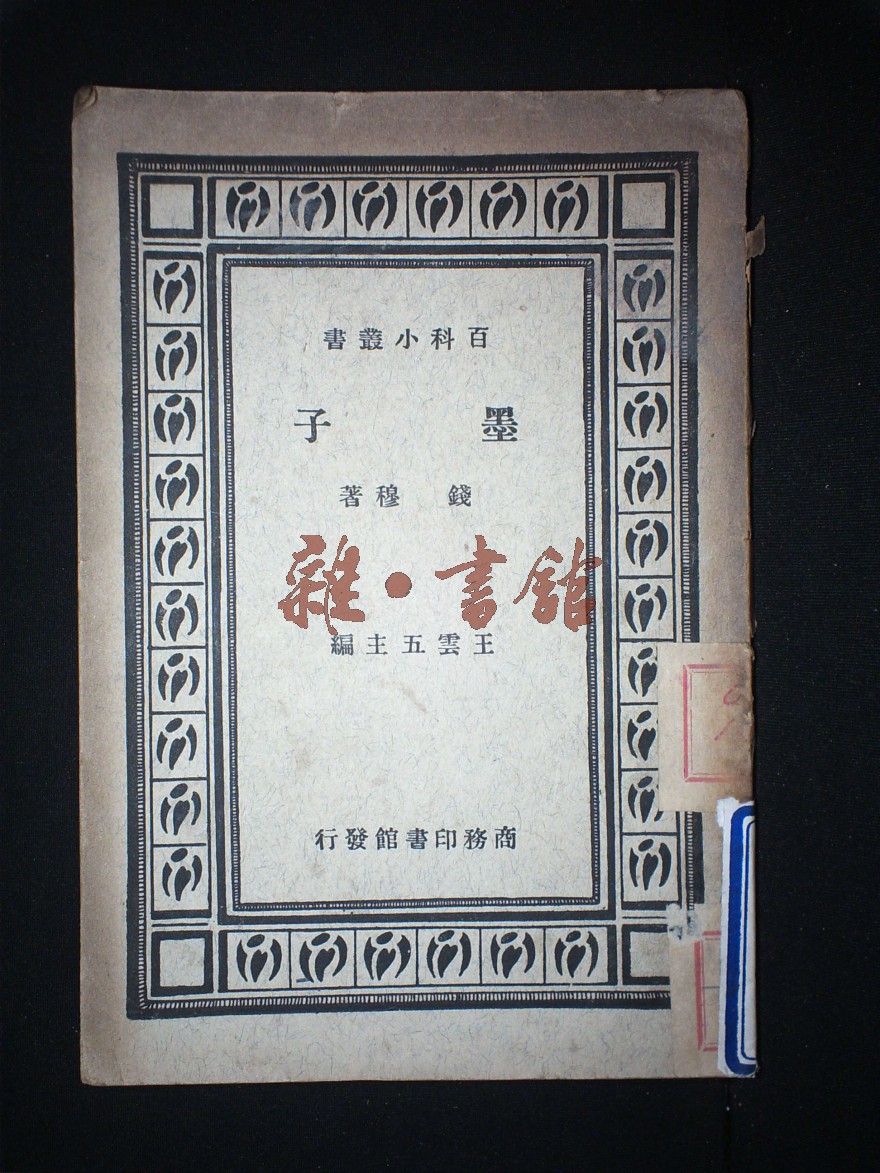 百科小叢書
墨子
錢穆著
雜·書館
王雲五主編
商務印書館發行